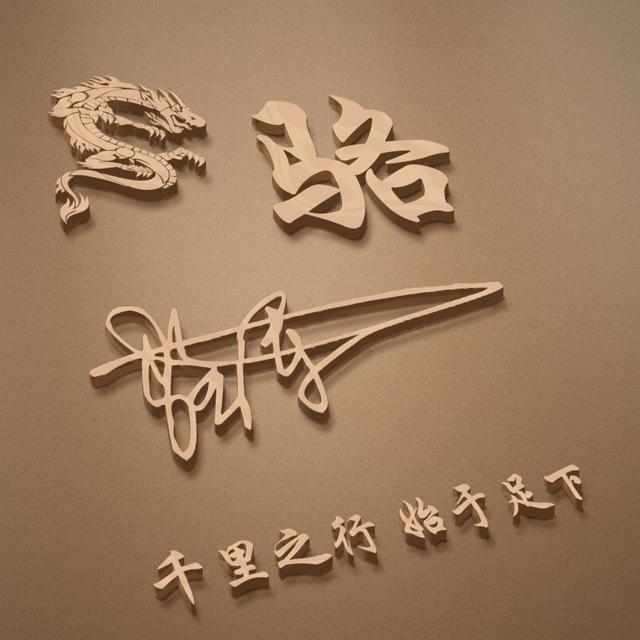 骆
千里之行 始于足下